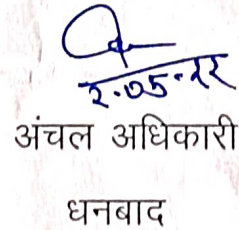 २.०5.२२
अंचल अधिकारी
धनबाद